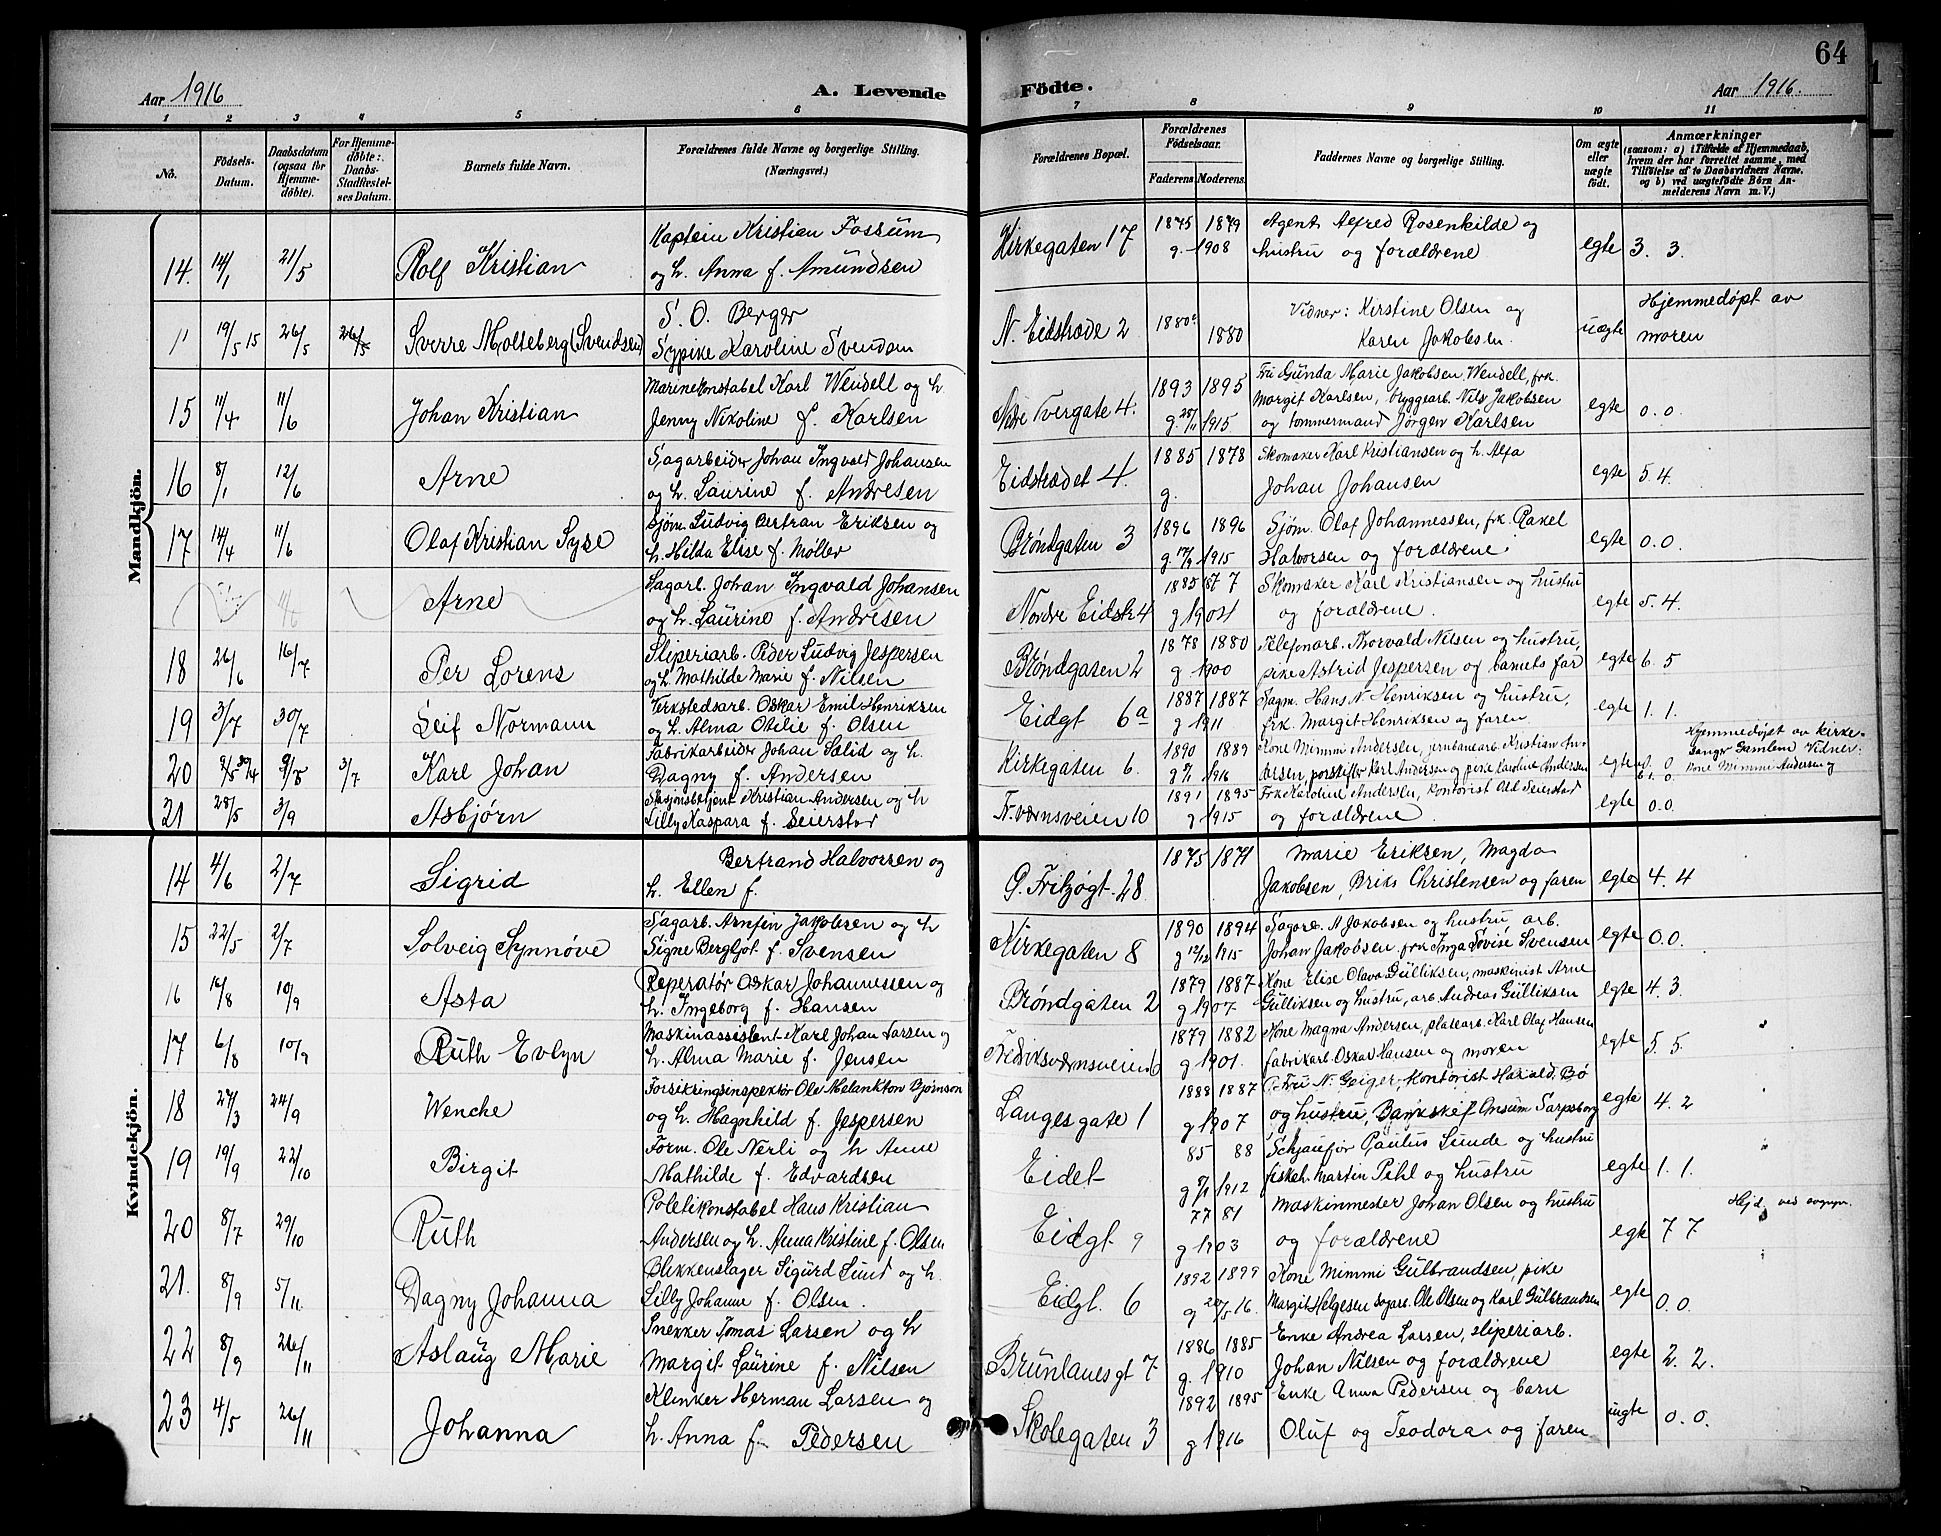 64
Aar 1916
A. Levende
Födte.
Aar 1916.
1 2 3 4 5 6 7 8 9 10 11
No.
Födsels-Datum.
Daabsdatum (ogsaa for Hjemme-döbte).
For Hjemme-döbte: Daabs-Stadfæstel-ses Datum.
Barnets fulde Navn.
Forældrenes fulde Navne og borgerlige Stilling.
(Næringsvei.)
Forældrenes Bopæl.
Forældrenes Födselsaar.
Faderens. Moderens.
Faddernes Navne og borgerlige Stilling.
Om ægte eller uægte födt.
Anmærkninger
(saasom: a) i Tilfælde af Hjemmedaab, hvem der har forrettet samme, med Tilföielse af to Daabsvidners Navne. og b) ved uægtefödte Börn An-melderens Navn m. V.)
Mandkjön.
14. 14/1 21/5 Rolf Kristian
Kaptein Kristian Fossum
og h. Anna f. Amundsen
Kirkegaten 17
1875 1879
g. 1908
Agent Alfred Rosenkilde og
hustru og forældrene
egte 3. 3.
" 19/5 15 26/5 26/5 Sverre Molteberg (Svendsen)
S. O. Berger
Sypike Karoline Svendsen
N. Eidstræde 2
1880 1880
Vidner: Kirstine Olsen og
Karen Jakobsen.
uægte
Hjemmedøpt av
moren
15 11/4 11/6 Johan Kristian
Marinekonstabel Karl Wendell og h.
Jenny Nikoline f. Karlsen
Nedre Tvergate 4.
1893 1895
g. 25/11 1915
Fru Gunda Marie Jakobsen, Wendell, frk.
Margit Karlsen, bryggearb. Nils Jakobsen
og tømmermand Jørgen Karlsen
egte 0. 0.
16 8/1 12/6 Arne
Sagarbeider Johan Ingvald Johansen
og h. Laurine f. Andresen
Eidstrædet 4.
1885 1878
g.
Skomaker Karl Kristiansen og h. Alfa
Johan Johansen
egte 5. 4.
17 14/4 11/6 Olaf Kristian Syke
Sjøm. Ludvig Bertran Eriksen og
h. Hilda Elise f. Møller
Brøndgaten 3
1896 1896
g. 17/9 1915
Sjøm. Olaf Johannessen, frk. Rakel
Halvorsen og forældrene
egte 0. 0.
Arne
Sagarb. Johan Ingvald Johansen
og h. Laurine f. Andresen
Nordre Eidstr 4
1885
g 1904
Skomaker Karl Kristiansen og hustru
og forældrene.
egte 5. 4.
18 26/6 16/7 Per Lorens
Sliperiarb. Peder Ludvig Jespersen
og h. Mathilde Marie f. Nilsen
Brøndgaten 2
1878 1880
g. 1900
Telefonarb. Thorvald Nilsen og hustru,
pike Astrid Jespersen og barnets far
egte 6. 5
19 3/7 30/7 Leif Normann
Verkstedsarb. Oskar Emil Henriksen
og h. Alma Otilie f. Olsen
Eidgt 6a
1887 1887
g 1911
Sagm. Hans N. Henriksen og hustru,
frk. Margit Henriksen og faren
egte 1. 1.
20 30/4 9/8 3/7 Karl Johan
Fabrikarbeider Johan Solid og h.
Dagny f. Andersen
Kirkegaten 6.
1890 1889
1916
Kone Mimmi Andersen, jernbanearb. Kristian An-
dersen, Karl Andersen og pike Karoline Andersen
egte 0. 0
Hjemmedøpt av kirke-
sanger Samlem Vidner:
Kone Mimmi Andersen og
21 28/5 3/9 Asbjørn
Stasjonsbetjent Kristian Andersen og h
Lilly Kaspara f. Seierstad
Fr.værnsveien 10
1891 1895
g. 1915
Frk Karoline Andersen, Kontorist Seierstad
og forældrene
egte 0. 0.
Kvindekjön.
14 4/6 2/7 Sigrid
Bertrand Halvorsen og
h. Ellen f.
G. Fritzøgt. 28
1875 1871
Marie Eriksen, Magda
Jakobsen, Christensen og faren
egte 4. 4
15 22/5 2/7 Solveig Synnøve
Sagarb. Arnfin Jakobsen og h
Signe Bergljot f. Svensen
Kirkegaten 8
1890 1894
g 12/12 1915
Sagarb. A Jakobsen og hustru, arb.
Johan Jakobsen frk Inga Lovise Svensen
egte 0. 0.
16 16/8 10/9 Asta
Reperatør Oskar Johannessen og
h. Ingeborg f. Hansen
Brøndgaten 2
1879 1887
g 1907
Kone Elise Olava Gulliksen, maskinist Arne
Gulliksen og hustru, arb. Andreas Gulliksen
egte 4. 3.
17 6/8 10/9 Ruth Evlyn
Maskinassistent Karl Johan Larsen og
h. Alma Marie f. Jensen
Fredriksværnsveien 6
1879 1882
g 1901.
Kone Magna Andersen, platearb. Karl Olaf Hansen
fabrikarb. Oskar Hansen og moren
egte 5. 5.
18 27/3 24/9 Wenche
Forsikringsinspektør Ole Melankton Bjørnson
og h. Magnhild f. Jespersen
Langes gate 1
1888 1887
g 1907
Fru N. Geiger, Kontorist Harald Bø
og hustru, Banksjef Sarpsborg
egte 4. 2
19 19/9 22/10 Birgit
Form. Ole Nerli og h Anne
Mathilde f. Edvardsen
Eidet
85 88
1912
Schjaufør Paulus Lunde og hustru
fiskeh. Martin Pihl og hustru
egte 1. 1.
20 8/7 29/10 Ruth
Politikonstabel Hans Kristian
Andersen og h. Anna Kristine f. Olsen
Eidgt 9
77 81
g 1903
Maskinmester Johan Olsen og hustru
og forældrene
egte 7 7
Hejd. ved sognpr.
21. 8/9 5/11. Dagny Johanna
Blikkenslager Sigurd Lund og h.
Lilly Johanne f. Olsen.
Eidgt. 6
1892 1899
g 20/5 16.
Kone Mimmi Gulbrandsen, pike
Margit Helgesen sagarb. Ole Olsen og Karl Gulbrandsen
egte 0. 0.
22 8/9 26/11 Aslaug Marie
Snekker Tomas Larsen og h
Margit Laurine f. Nilsen
Brunlanesgt 7
1886 1885
g. 1910
Enke Andrea Larsen, sliperiarb.
Johan Nilsen og forældrene
egte 2. 2.
23 4/5 26/11 Johanna
Klinker Herman Larsen og
h. Anna f. Pedersen
Skolegaten 3
1892 1895
g 1916
Enke Anna Pedersen og barn
Oluf og Teodora og faren
uegte 0. 0.